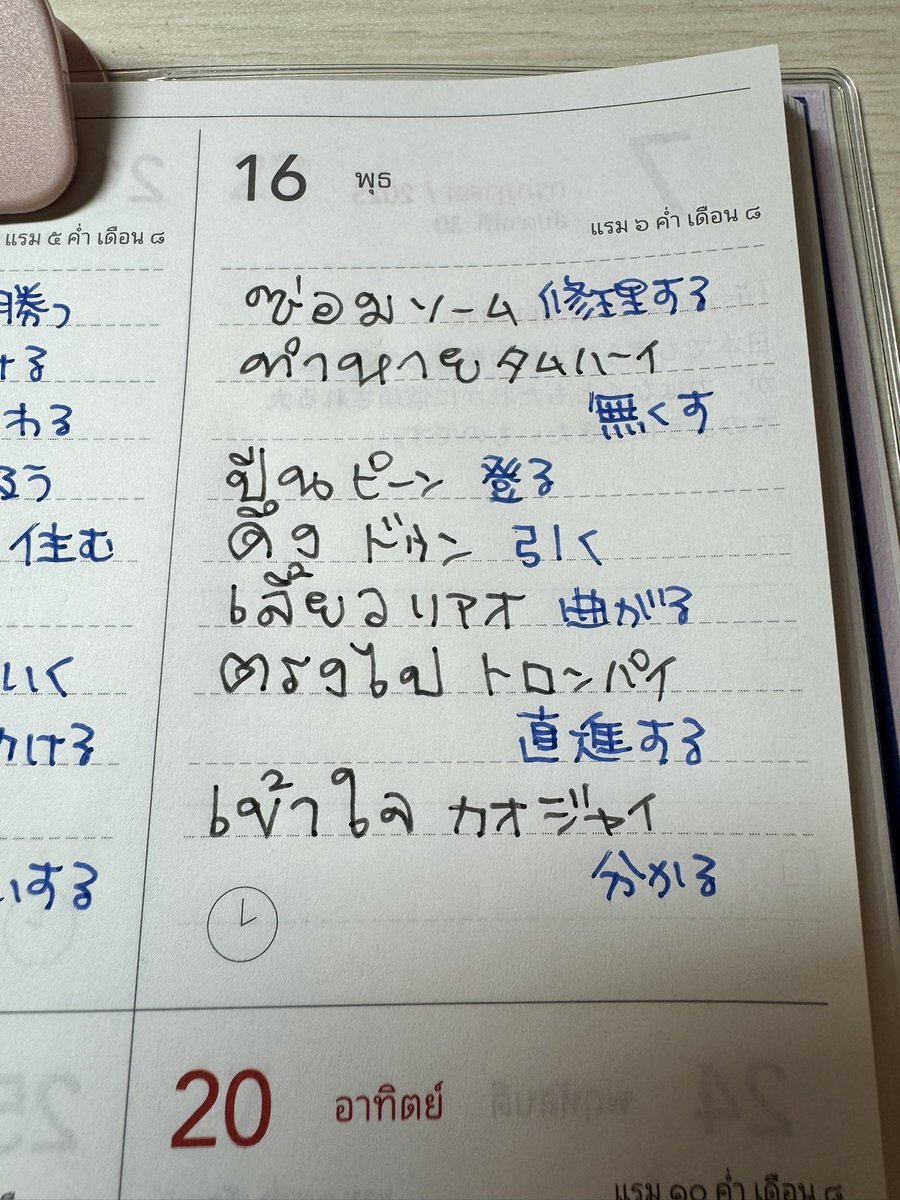 16 พุธ
แรม ๕ ค่ำ เดือน ๘
แรม ๖ ค่ำ เดือน ๘
勝つ
ซ่อม ソーム 修理する
ける
ทำหาย タムハーイ
わる
無くす
ปีน ピーン 登る
住む
ดึง ドゥン 引く
เลี้ยว リアオ 曲がる
いく
ตรงไป トロンパイ
かける
直進する
เข้าใจ カオジャイ
いする
分かる
20 อาทิตย์
แรม ๑๐ ค่ำ เดือน ๘